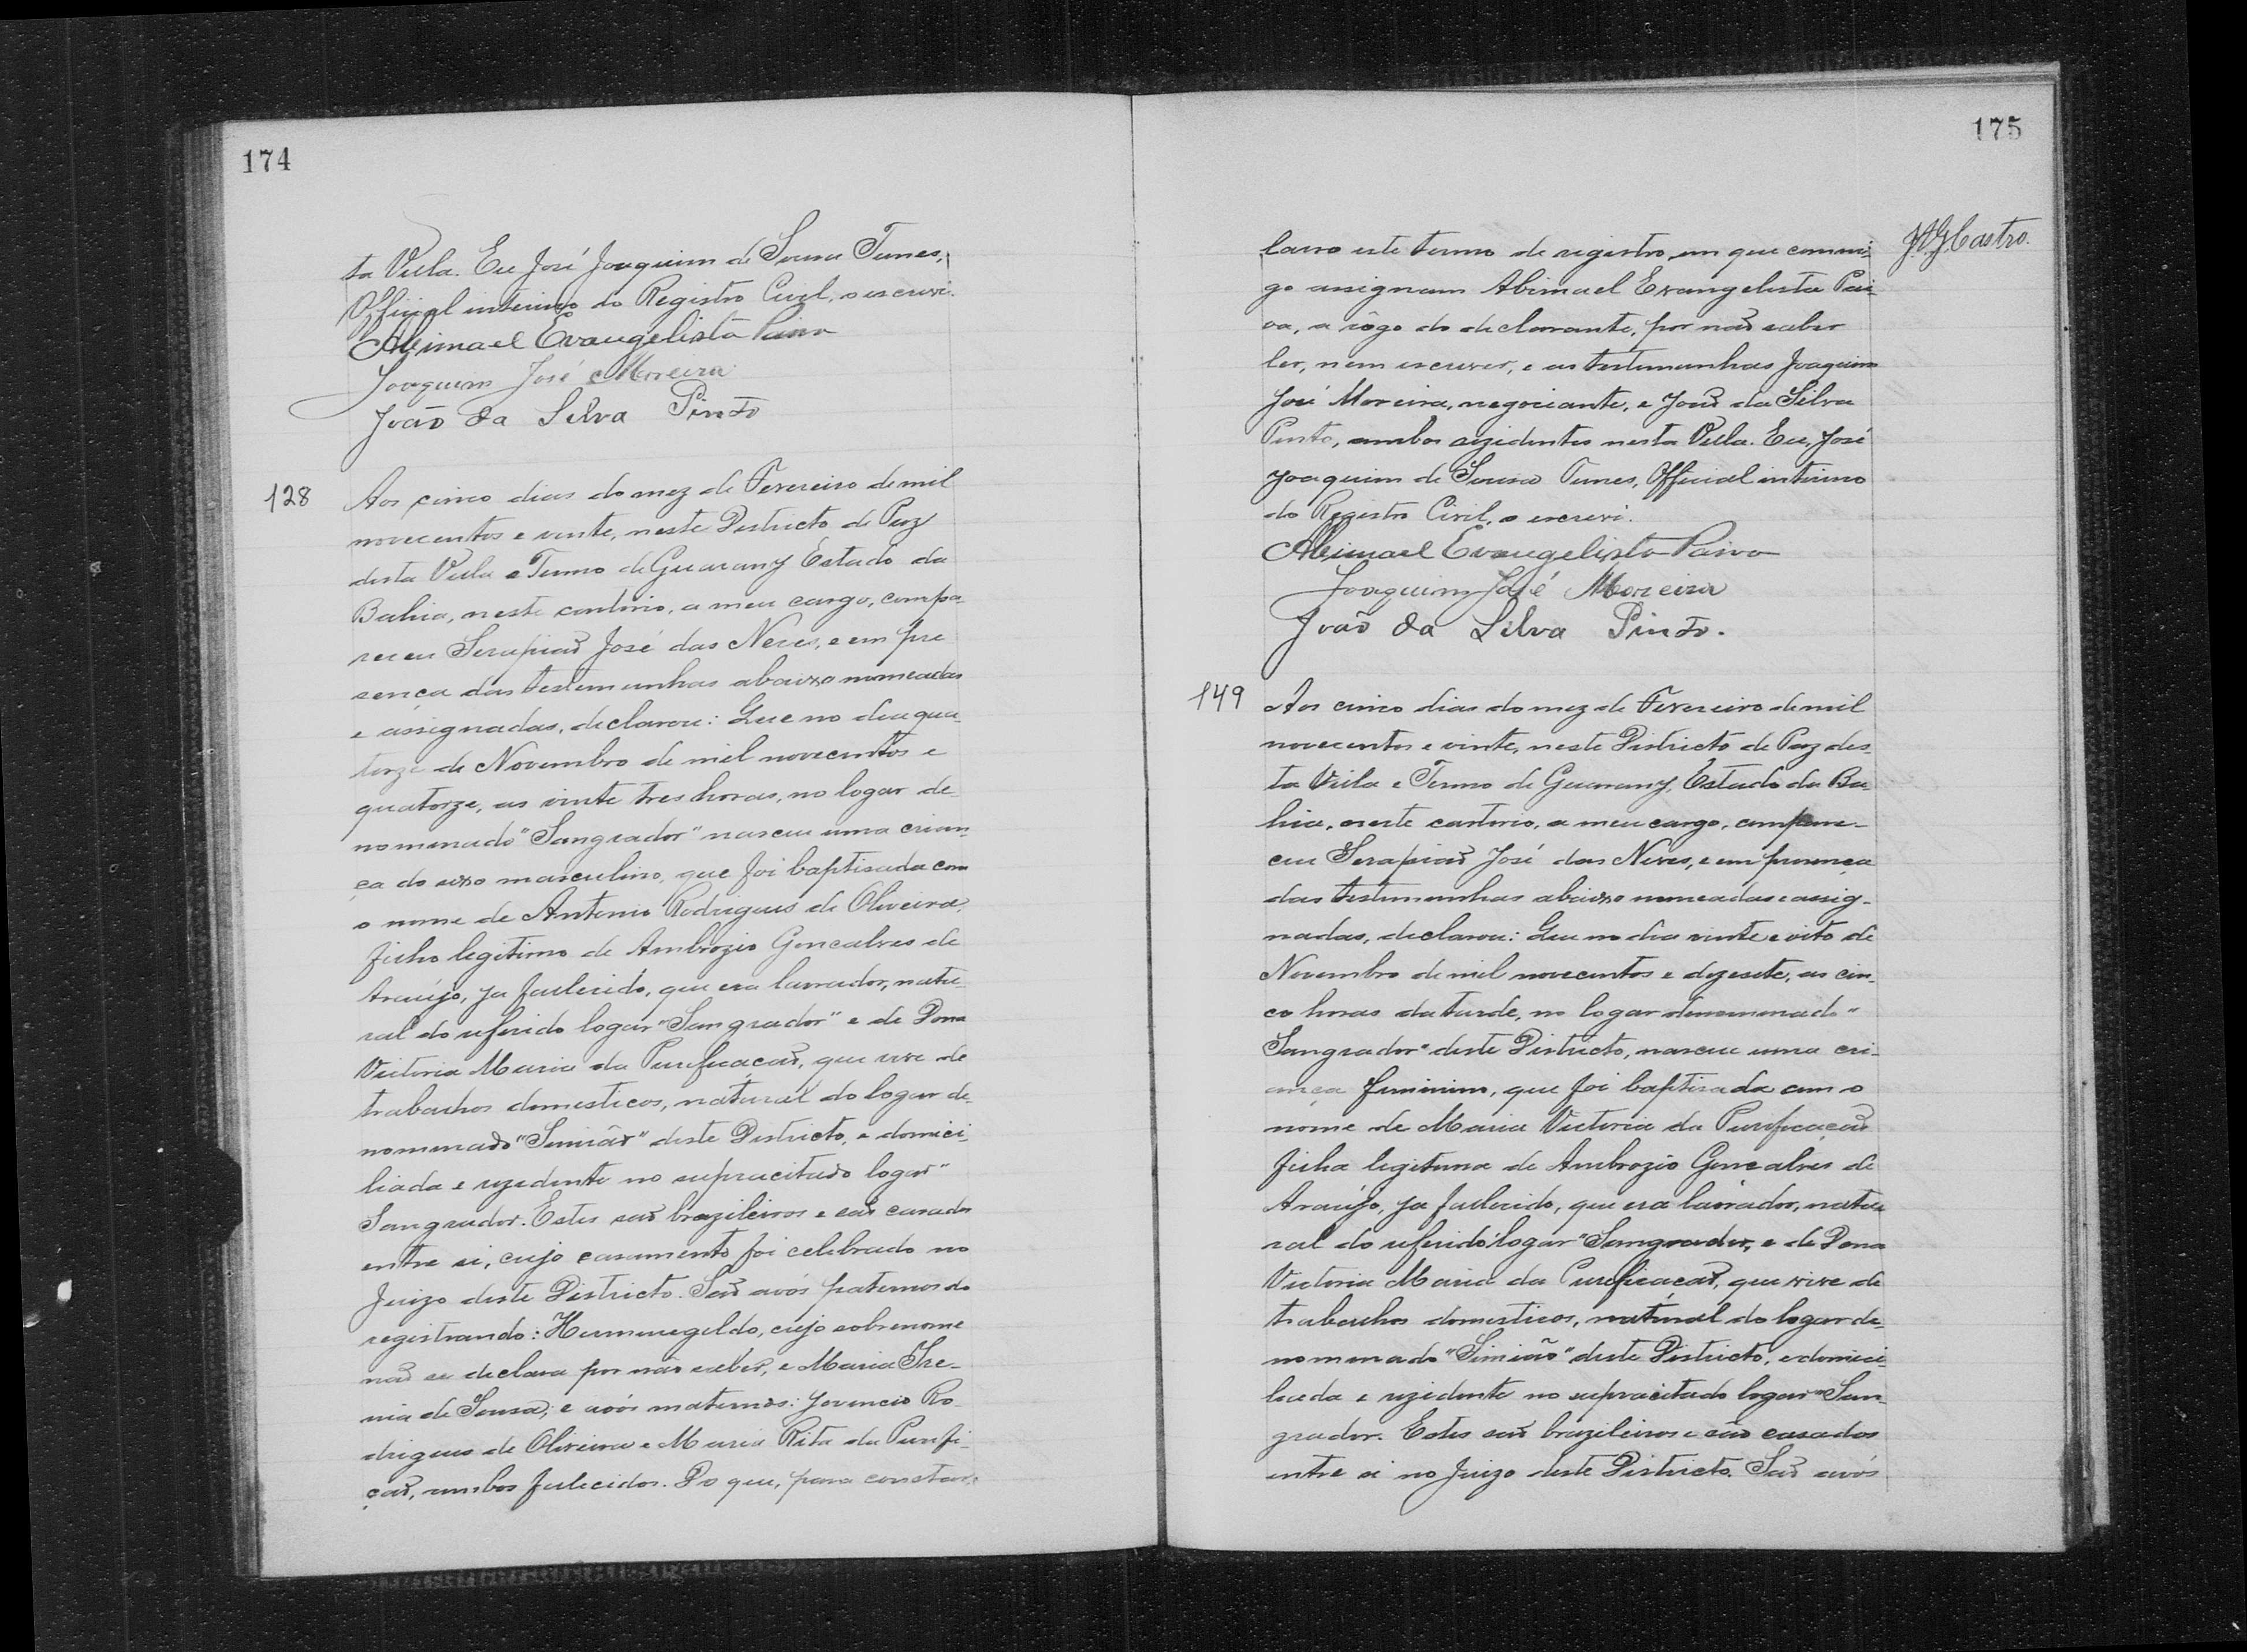 174
ta Villa. Eu José Joaquim de Sousa Tunes,
Official interino do Registro Civil, o escrevi.
Abimael Evangelista Paiva
Joaquim José Moreira
João da Silva Pinto
128
Aos cinco dias do mez de Fevereiro de mil
novecentos e vinte, neste Districto de Paz
desta Villa e Termo de Guarany Estado da
Bahia, neste cartorio, a meu cargo, compa-
receu Serapião José das Neves, e em pre
sença das testemunhas abaixo nomeadas
e assignadas, declarou: Que no dia qua-
torze de Novembro de mil novecentos e
quatorze, as vinte tres horas, no logar de-
nominado "Sangrador" nasceu uma crian-
ça do sexo masculino, que foi baptisada com
o nome de Antonio Rodrigues de Oliveira,
filho legitimo de Ambrozio Goncalves de
Araújo, ja fallecido, que era lavrador, natu-
ral do referido logar "Sangrador" e de Dona
Victoria Maria da Purificação, que vive de
trabalhos domesticos, natural do logar de-
nominado "Simião" deste Districto, e domici-
liada e rezidente no supracitado logar "
Sangrador. Estes são brazileiros e são casados
entre si, cujo casamento foi celebrado no
Juizo deste Districto. São avós paternos do
registrando: Hermenegildo, cujo sobrenome
não se declara por não saber, e Maria Ire-
nia de Sousa; e avós maternos: Jovencio Ro-
drigues de Oliveira e Maria Rita da Purifi-
ção, ambos fallecidos. Do que, para constar,
175
J. A. G. Castro.
lavro este termo de registro, em que commi-
go assignam Abimael Evangelista Pai-
va, a rôgo do declarante, por não saber
ler, nem escrever, e as testemunhas Joaquim
José Moreira, negociante, e João da Silva
Pinto, ambos rezidentes nesta Villa. Eu, José
Joaquim de Sousa Tunes, Official interino
do Registro Civil, o escrevi.
Abimael Evangelista Paiva
Joaquim José Moreira
João da Silva Pinto.
149
Aos cinco dias do mez de Fevereiro de mil
novecentos e vinte, neste Districto de Paz des-
ta Villa e Termo de Guarany, Estado da Ba-
hia, neste cartorio, a meu cargo, compare-
ceu Serapião José das Neves, e em presença
das testemunhas abaixo nomeadas e assig-
nadas, declarou: Que no dia vinte e oito de
Novembro de mil novecentos e dezesete, as cin-
co horas da tarde, no logar denominado "
Sangrador" deste Districto, nasceu uma cri-
ança feminino, que foi baptisada com o
nome de Maria Victoria da Purificação
filha legitima de Ambrozio Goncalves de
Araújo, ja fallecido, que era lavrador, natu
ral do referido logar "Sangrador, e de Dona
Victoria Maria da Purificação, que vive de
trabalhos domesticos, natural do logar de-
nominado "Simião" deste Districto, e domici-
liada e rezidente no supracitado logar "San-
grador. Estes são brazileiros e são casados
entre si no Juizo deste Districto. São avós